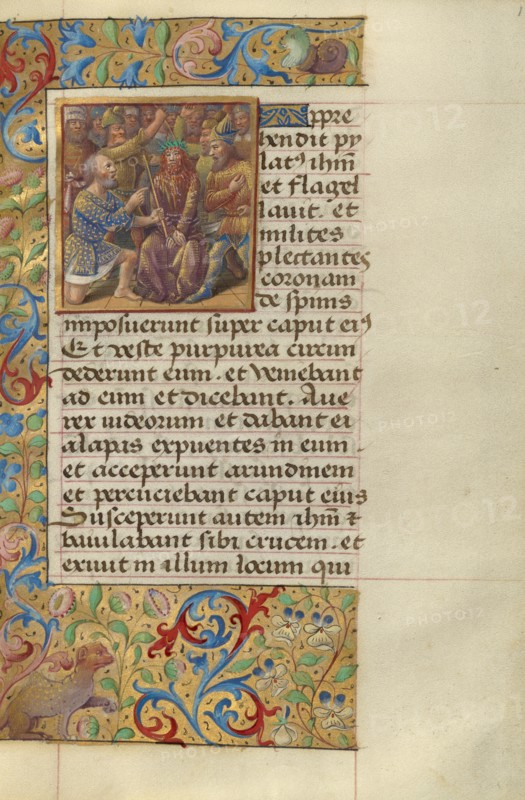 Appre
hendit py
lat⁹ ihm̄
et flagel
lauit. et
milites
plectantes
coronam
de spinis
imposuerunt super caput ei⁹
Et veste purpurea circum
dederunt eum. et veniebant
ad eum et dicebant. Aue
rex iudeorum et dabant ei
alapas expuentes in eum
et acceperunt arundinem
et percuciebant caput eius
Susceperunt autem ihm̄ ⁊
baiulabant sibi crucem. et
exiuit in illum locum qui
PHOTO12